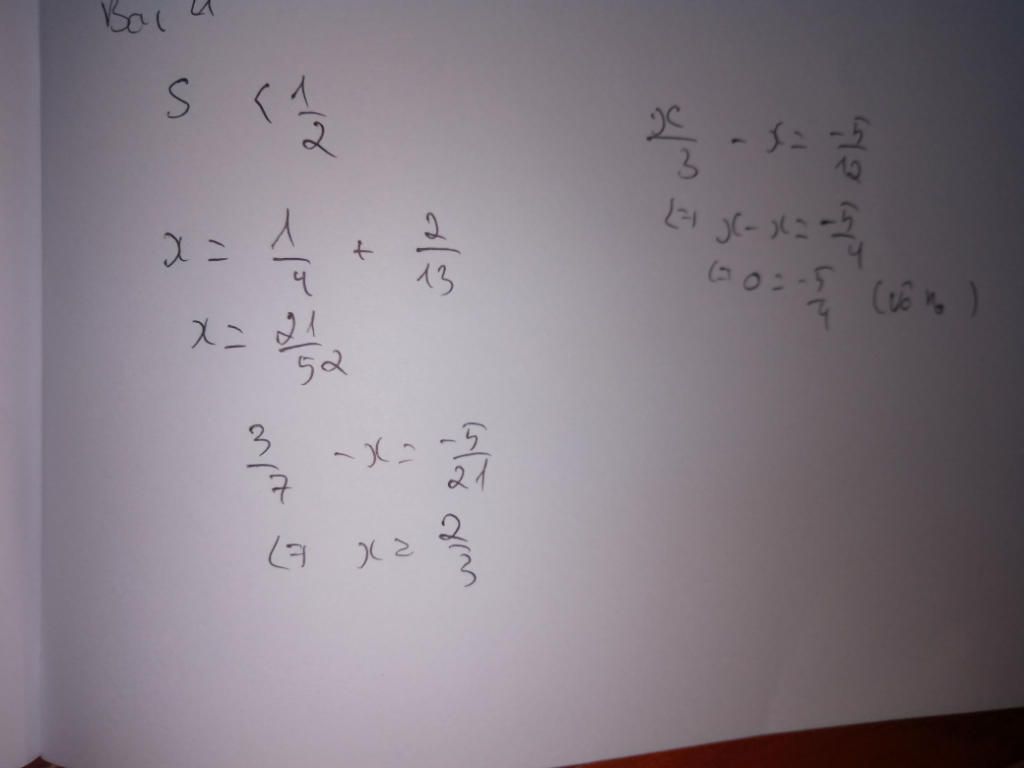 Bài 4
S < 1/2
x = 1/4 + 2/13
x = 21/52
3/7 - x = -5/21
<=> x = 2/3
x/3 - x = -5/12
<=> x - x = -5/4
<=> 0 = -5/4 (vô no)